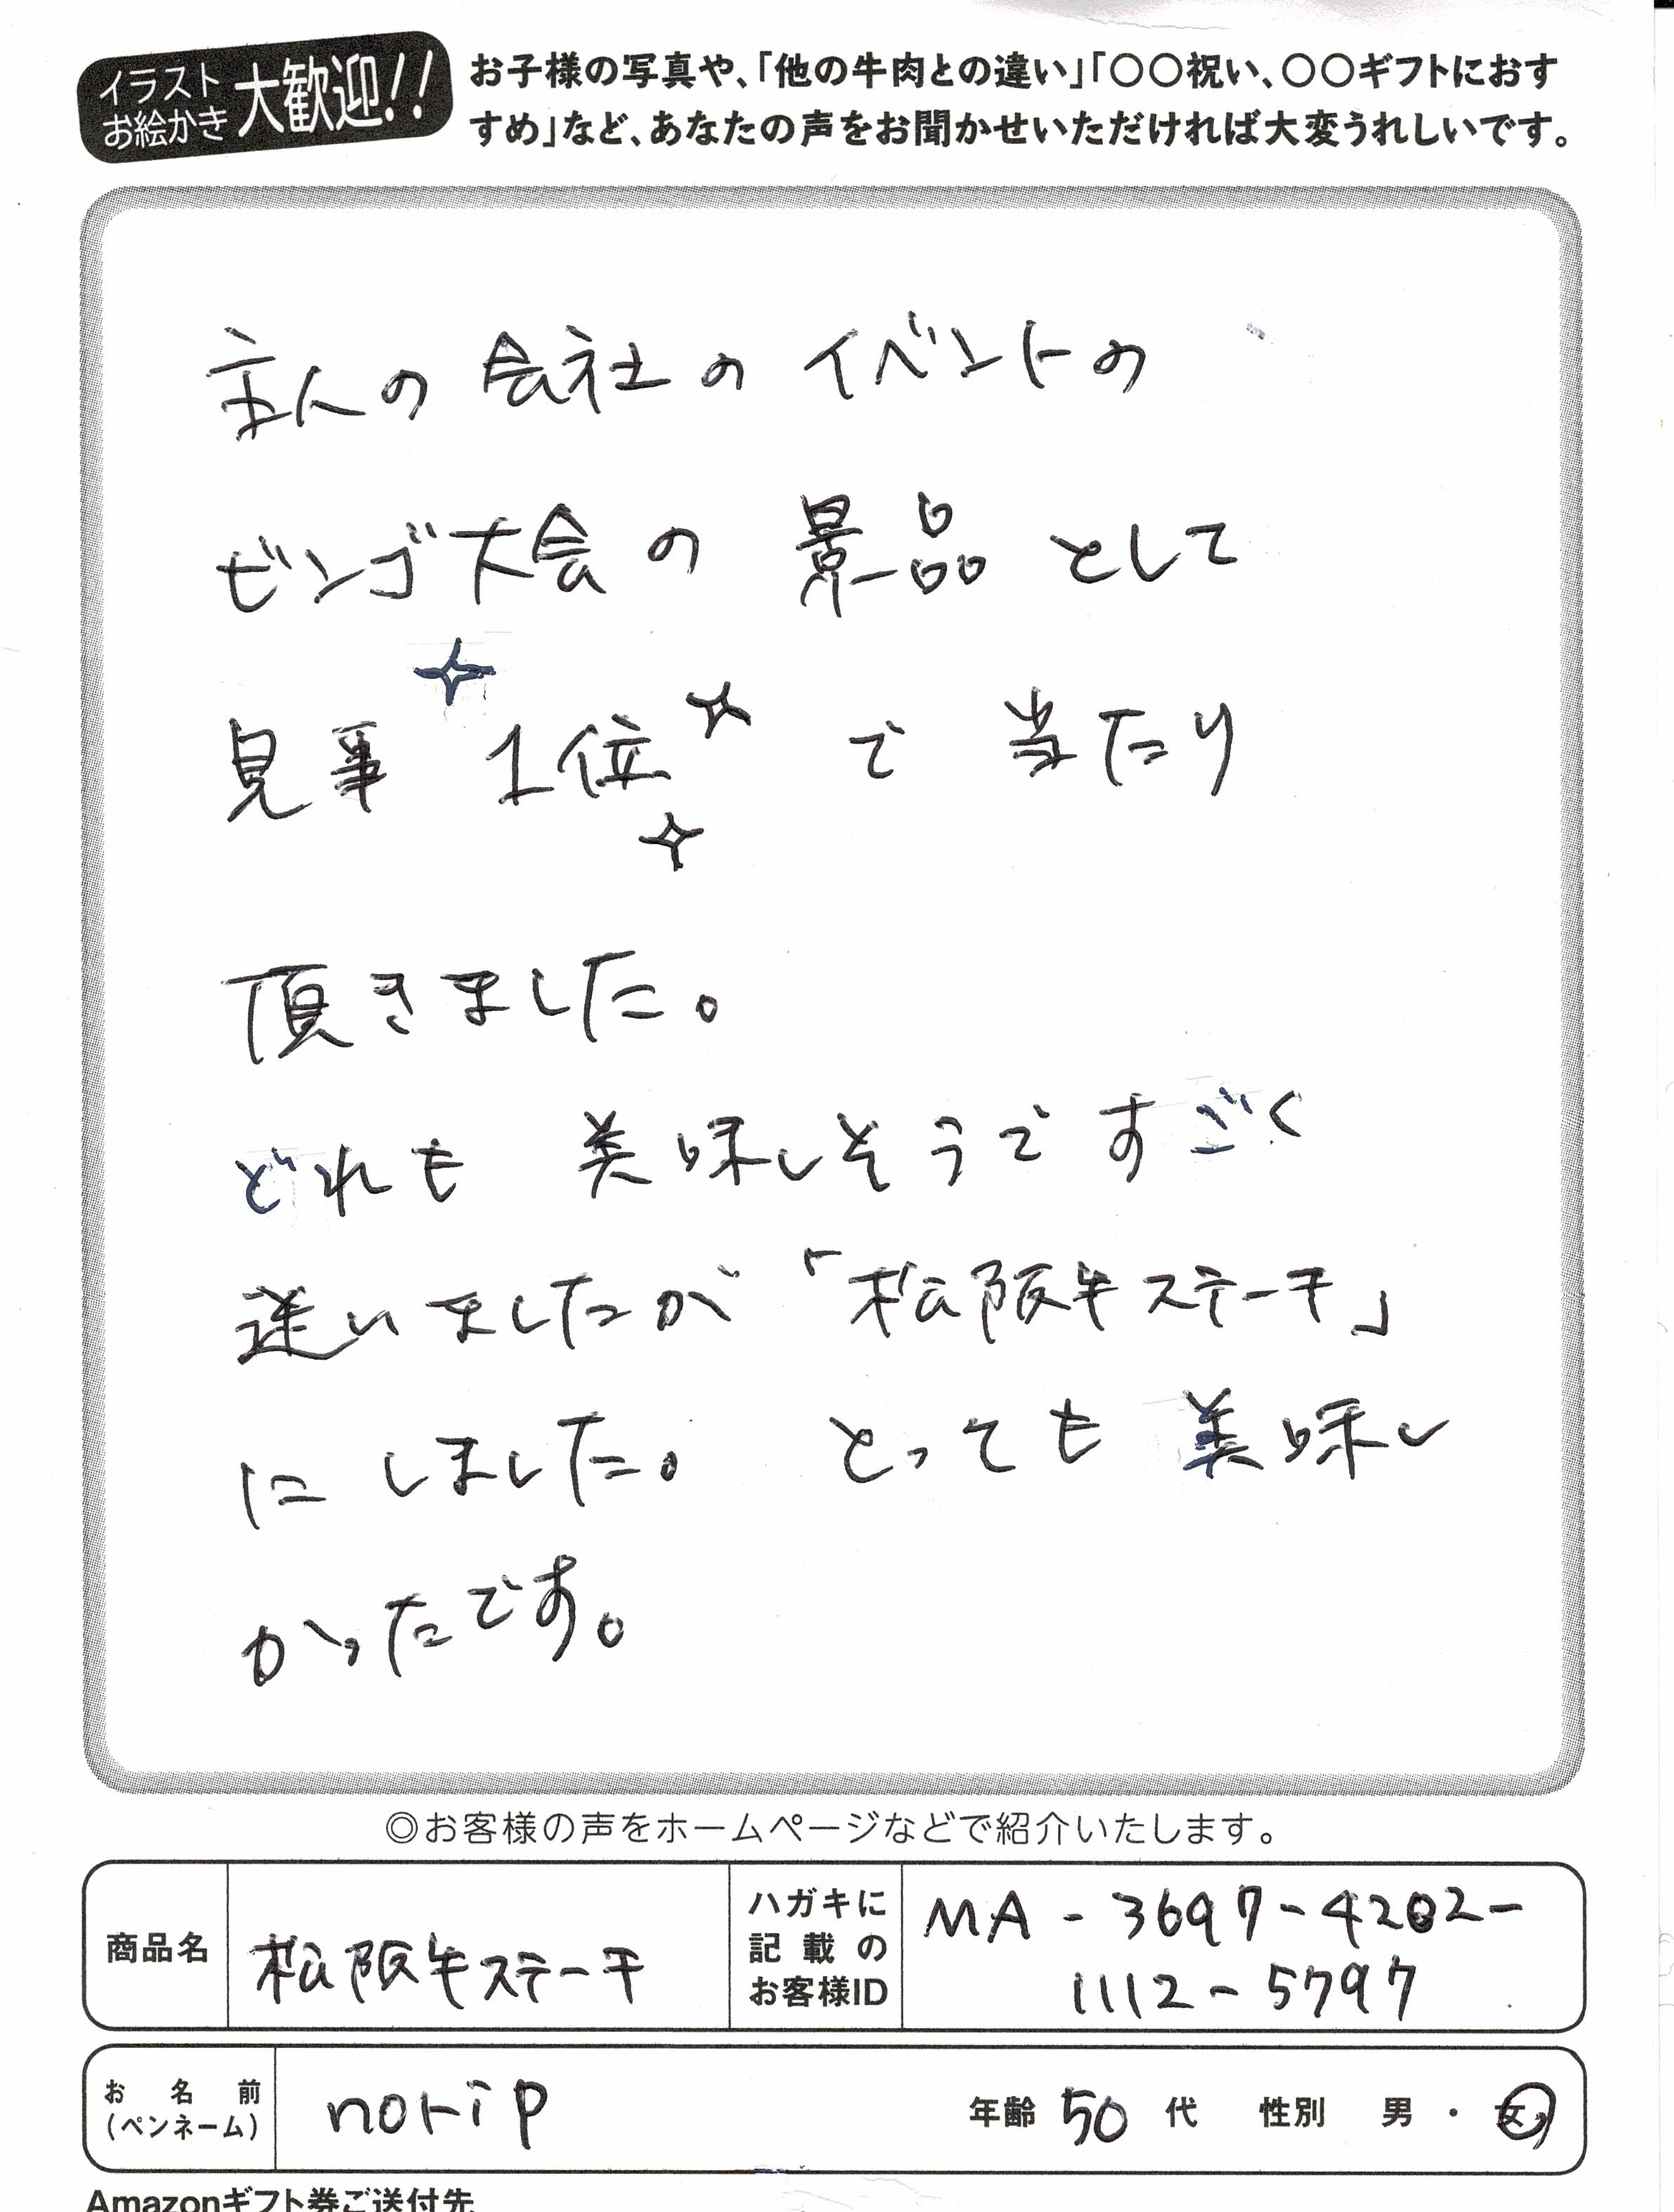 イラスト
お絵かき
大歓迎!!
お子様の写真や、「他の牛肉との違い」「〇〇祝い、〇〇ギフトにおす
すめ」など、あなたの声をお聞かせいただければ大変うれしいです。
主人の会社のイベントの
ビンゴ大会の景品として
見事 1位 で 当たり
頂きました。
どれも 美味しそうですごく
迷いましたが「松阪牛ステーキ」
にしました。とっても美味し
かったです。
◎お客様の声をホームページなどで紹介いたします。
商品名
松阪牛ステーキ
ハガキに
記載の
お客様ID
MA-3697-4202-
1112-5797
お名前
(ペンネーム)
norip
年齢 50 代 性別 男・女
Amazonギフト券ご送付先